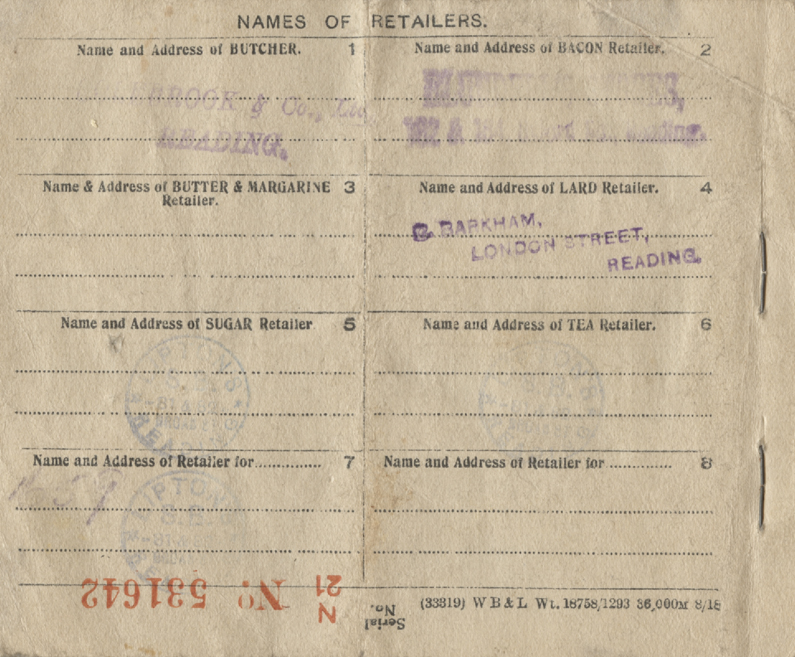 NAMES OF RETAILERS.
Name and Address of BUTCHER. 1
BROOK & Co., Ltd
READING.
Name and Address of BACON Retailer. 2
Name & Address of BUTTER & MARGARINE 3
Retailer.
Name and Address of LARD Retailer. 4
BARKHAM,
LONDON STREET,
READING.
Name and Address of SUGAR Retailer 5
Name and Address of TEA Retailer. 6
Name and Address of Retailer for.............. 7
LIPTON
Name and Address of Retailer for .............. 8
N 21 No 531642
Serial No.
(33319) W B & L Wt. 18758/1293 36,000M 8/18